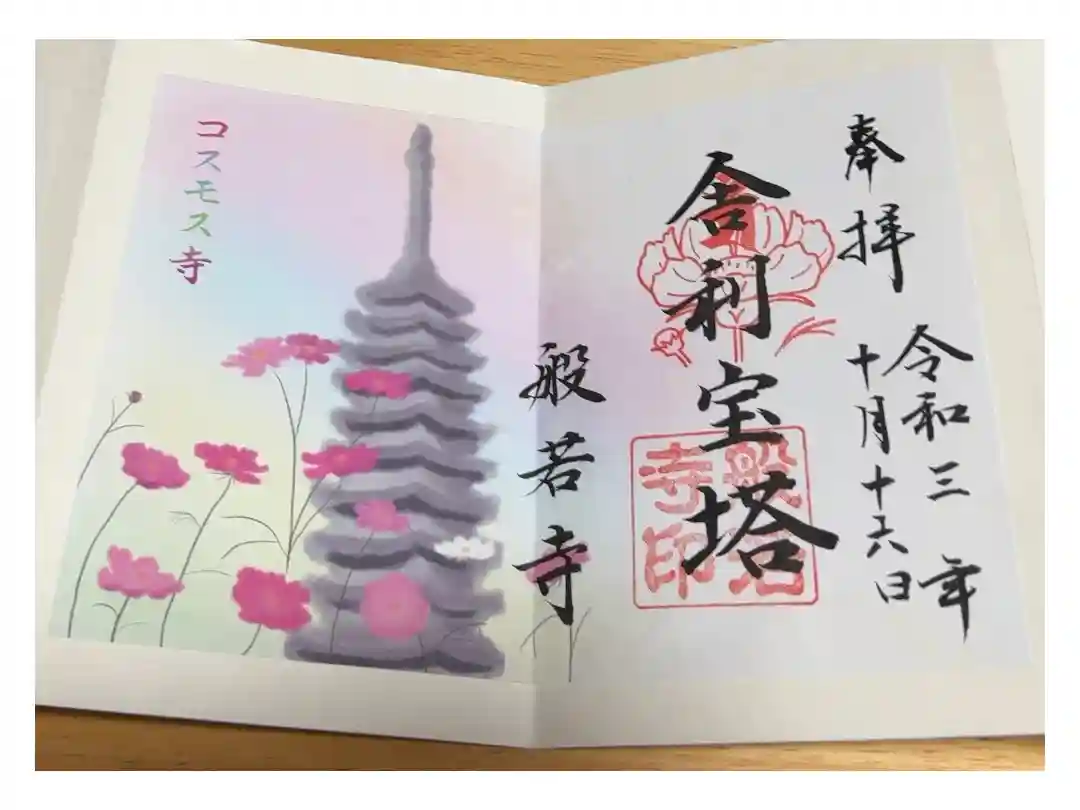 奉拝
令和三年
十月十六日
舎利宝塔
般若寺印
般若寺
コスモス寺